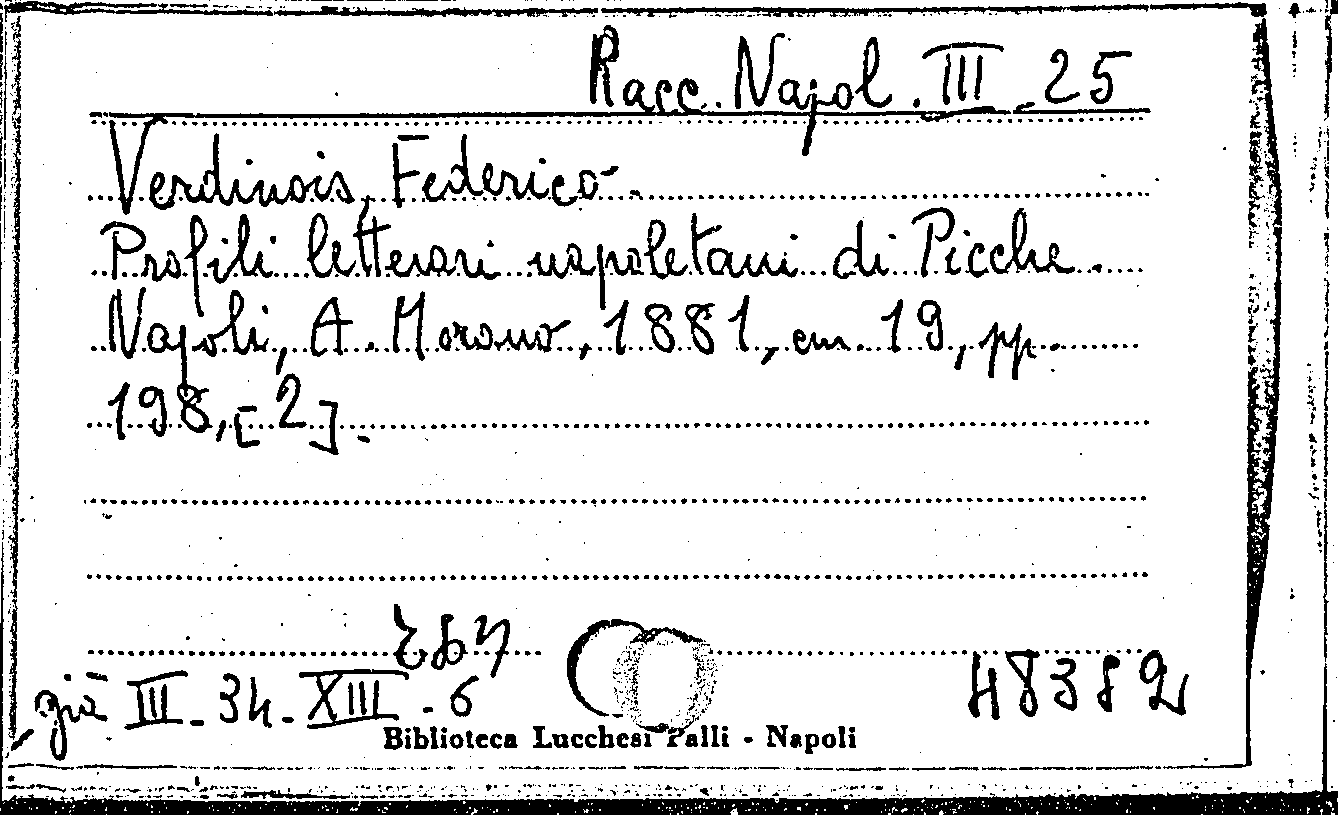 Racc. Napol. III - 25
Verdinois, Federico.
Profili letterari napoletani di Picche.
Napoli, A. Morano, 1881, cm. 19, pp.
198, [2].
già III - 34 - XIII - 6
48382
Biblioteca Lucchesi Palli - Napoli